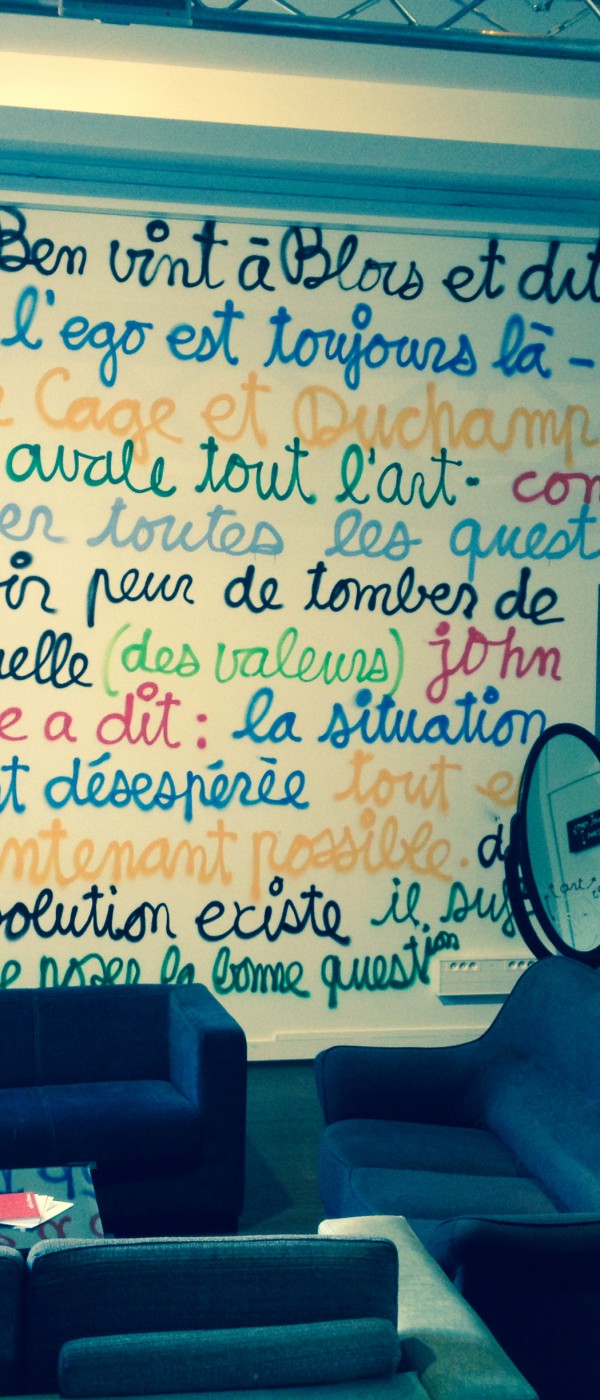 Ben vint à Blois et dit
l'ego est toujours là -
Cage et Duchamp
avale tout l'art - con
er toutes les quest
ir peur de tomber de
elle (des valeurs) john
e a dit : la situation
t désespérée tout e
ntenant possible. d
solution existe il suf
e poser la bonne question